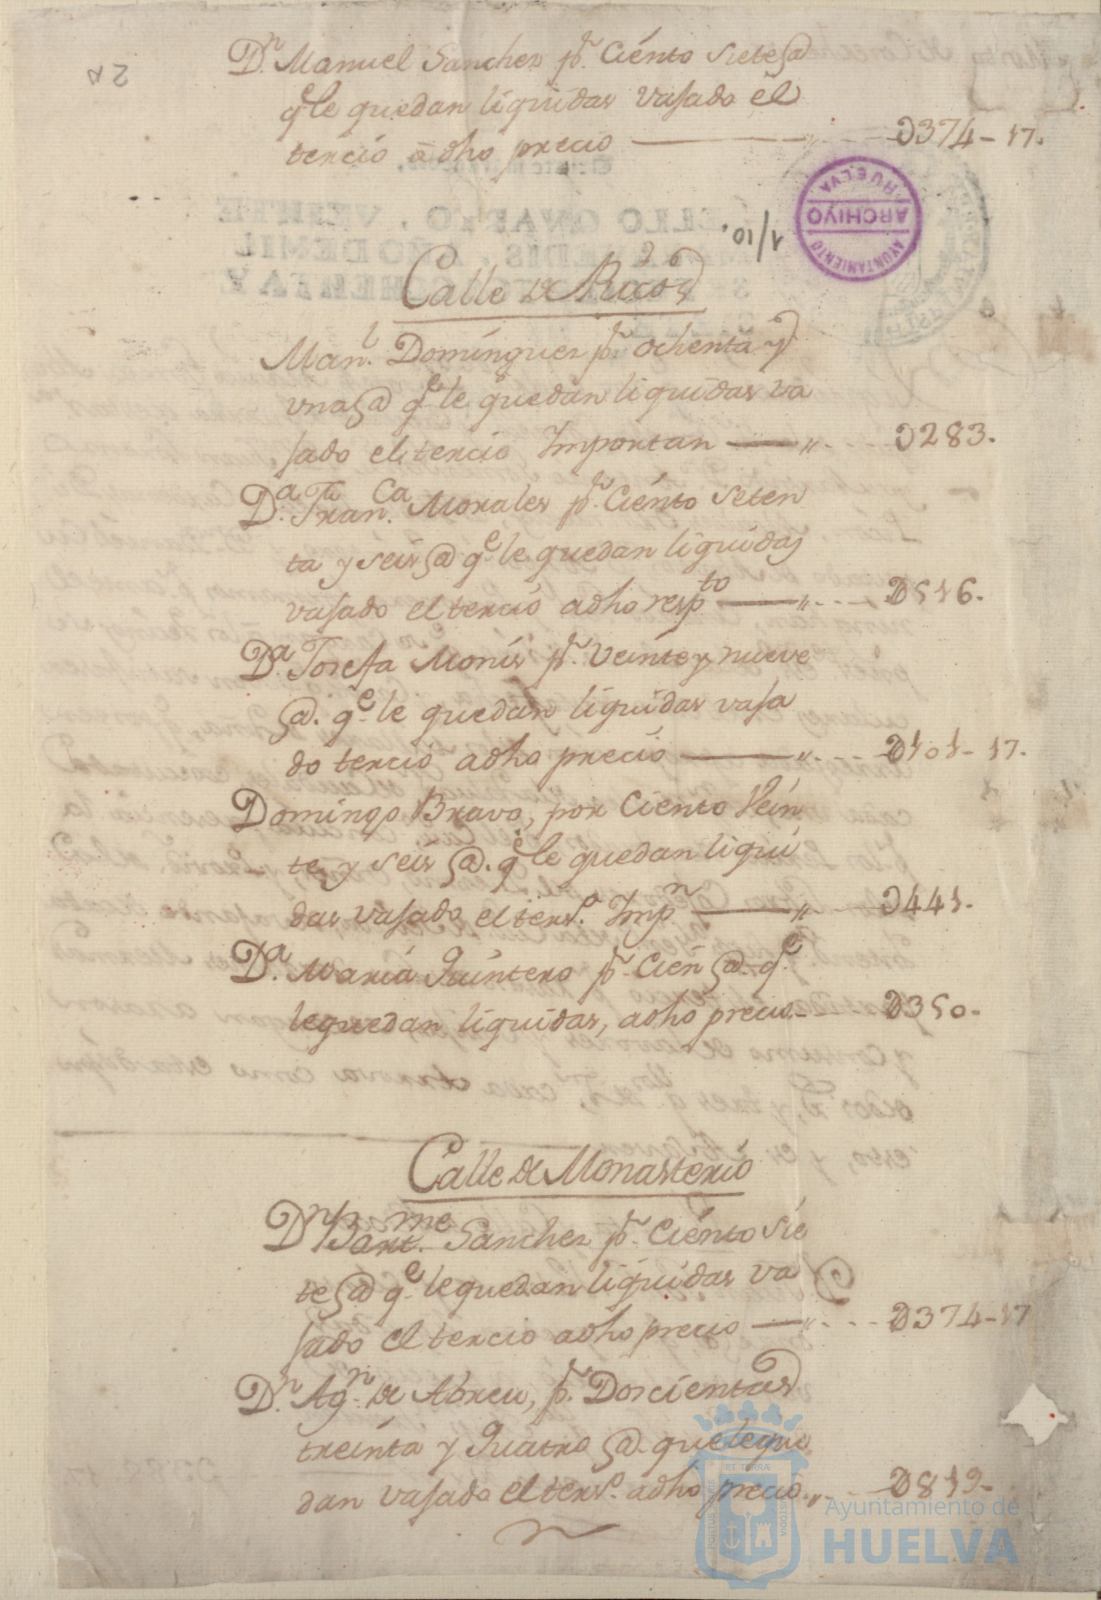 Dn. Manuel Sanchez pr. Ciento siete @
qe. le quedan liquidas vasado el
tercio a dho precio — " - - - D374-17.
AYUNTAMIENTO
ARCHIVO
HUELVA
Calle de Ricos
Manl. Dominguez pr. ochenta y
una @ qe. le quedan liquidas va
sado el tercio Importan — " - - - D283.
Da. Franca. Morales pr. Ciento seten
ta y seis @ qe. le quedan liquidas
vasado el tercio adho respto — " - - - D616.
Da. Josefa Monis pr. veinte y nueve
@. qe. le quedan liquidas vasa
do tercio adho precio — " - - - D101-17.
Domingo Bravo, por Ciento vein
te y seis @. qe. le quedan liqui
das vasado el terso. Impn — " - - - D441.
Da. Maria Quintero pr. Cien @. qe.
lequedan liquidas, adho precio - - - D350.
Calle de Monasterio
Dn. Bartme. Sanchez pr. Ciento sie
te @ qe. lequedan liquidas va
sado el tercio adho precio — " - - - D374-17
Dn. Agn. de Abreu, pr. Doscientas
treinta y quatro @. que le que
dan vasado el terso. adho precio - - - D819-
Ayuntamiento de
HUELVA